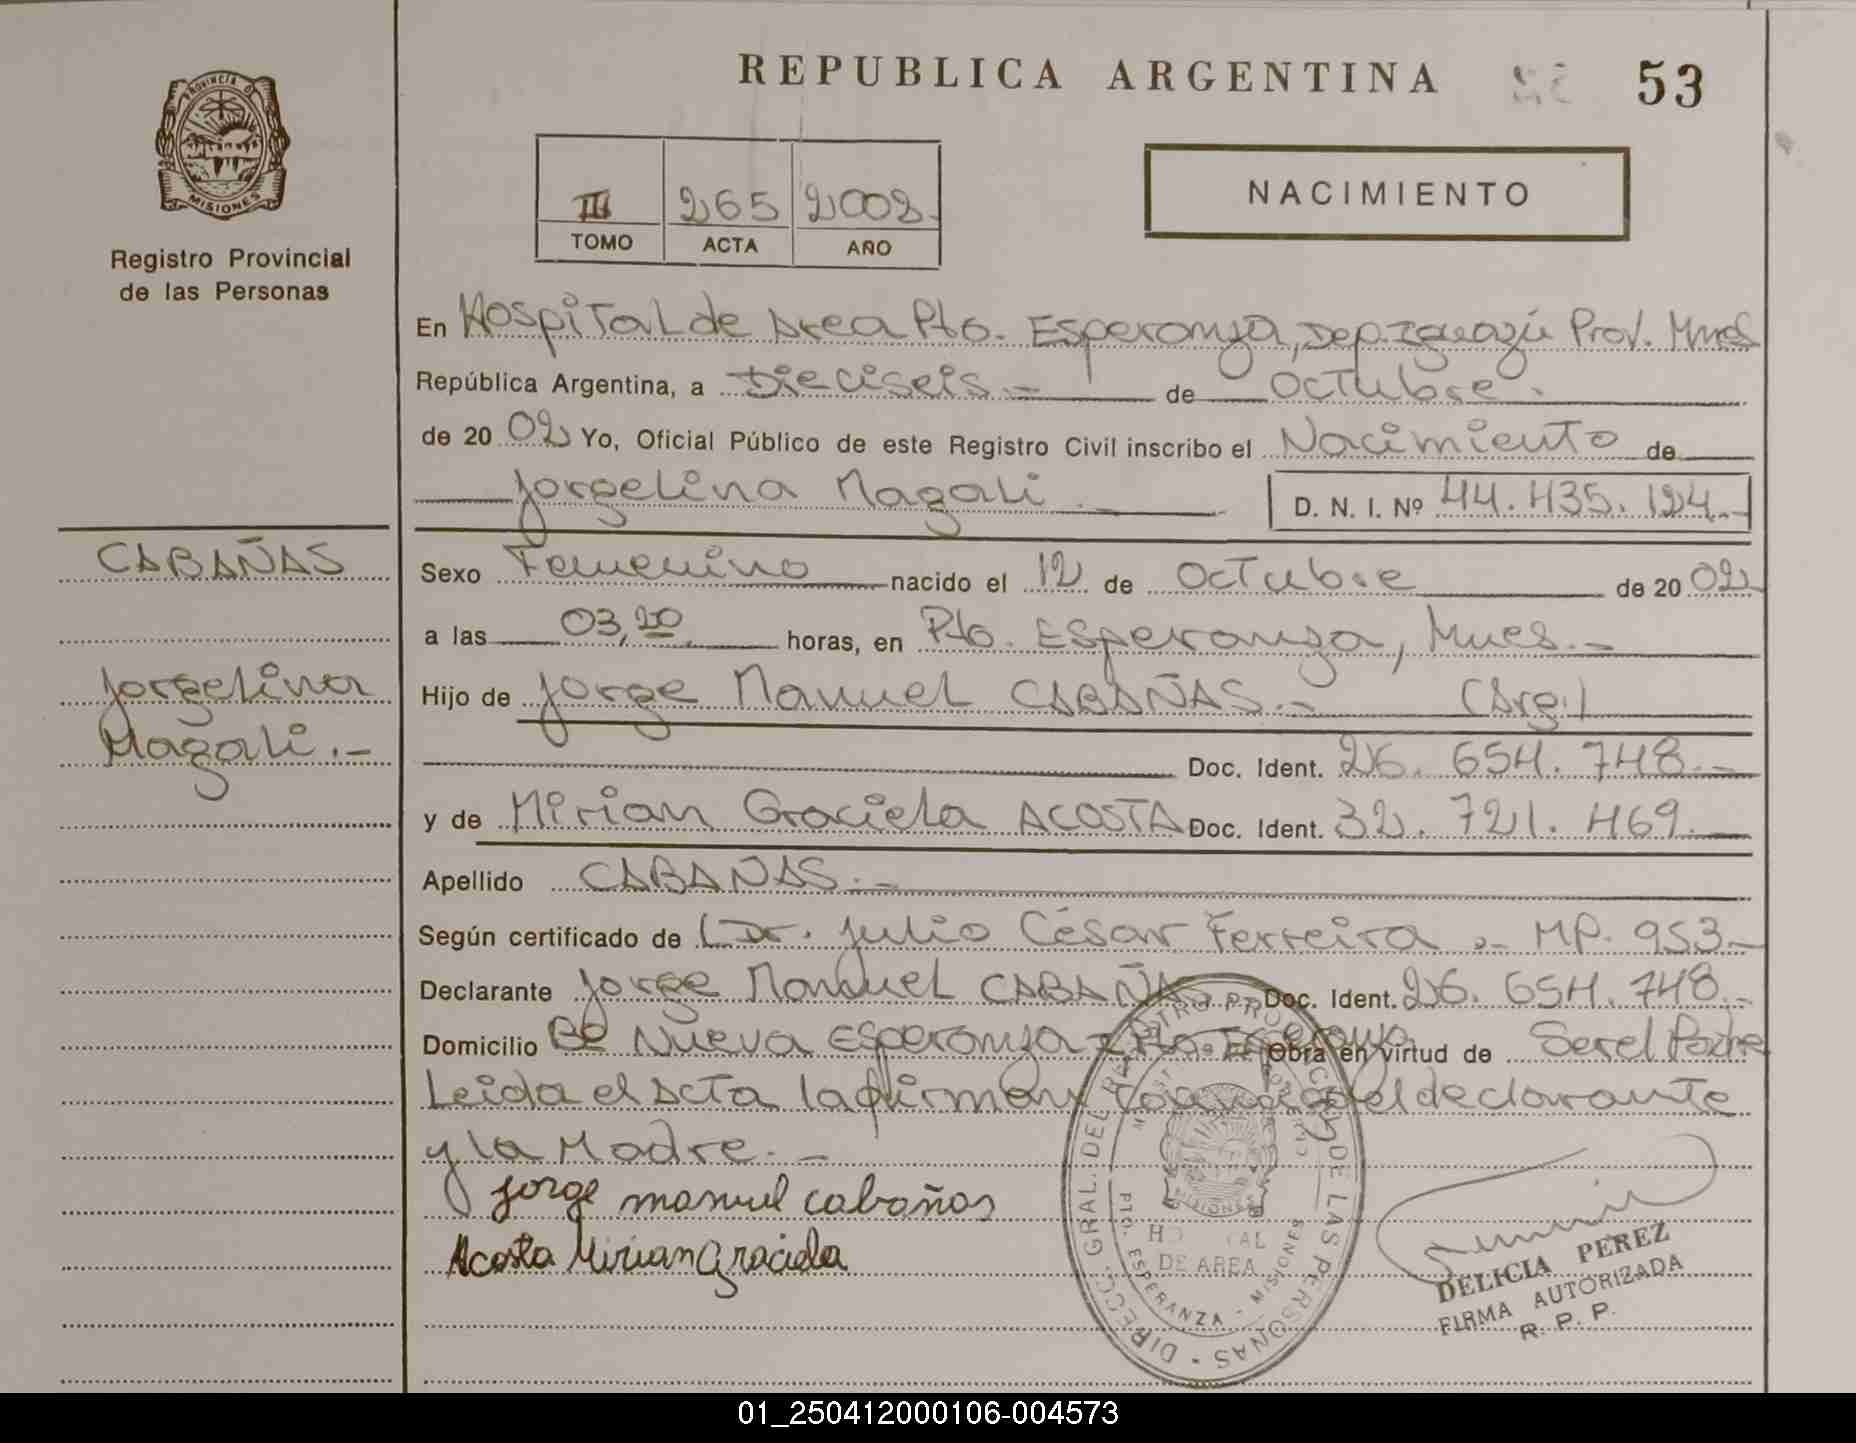 REPUBLICA ARGENTINA
53
PROVINCIA DE
MISIONES
Registro Provincial
de las Personas
III 265 2002.
TOMO ACTA AÑO
NACIMIENTO
En Hospital de Area Pto. Esperanza, Dep. Iguazú Prov. Mnes
República Argentina, a Dieciseis.- de Octubre.
de 20 02 Yo, Oficial Público de este Registro Civil inscribo el Nacimiento de
Jorgelina Magali.- D. N. I. Nº 44.435.124.-
CABAÑAS
Jorgelina
Magali.-
Sexo Femenino nacido el 12 de Octubre de 20 02
a las 03,20 horas, en Pto. Esperanza, Mnes.-
Hijo de Jorge Manuel CABAÑAS.- (Arg.)
Doc. Ident. 26.654.748.-
y de Mirian Graciela ACOSTA Doc. Ident. 32.721.469.
Apellido CABAÑAS.-
Según certificado de Dr. Julio César Ferreira.- MP. 953.-
Declarante Jorge Manuel CABAÑAS Doc. Ident. 26.654.748.-
Domicilio Bº Nueva Esperanza - Pto. Esperanza Obra en virtud de Ser el Padre
Leida el Acta la firman conmigo el declarante
y la Madre.-
Jorge manuel cabañas
Acosta Mirian Graciela
DIRECC. GRAL. DEL REGISTRO PROVINCIAL DE LAS PERSONAS
MISIONES
DE AREA
PTO. ESPERANZA - MISIONES
DELICIA PEREZ
FIRMA AUTORIZADA
R. P. P.
01_250412000106-004573